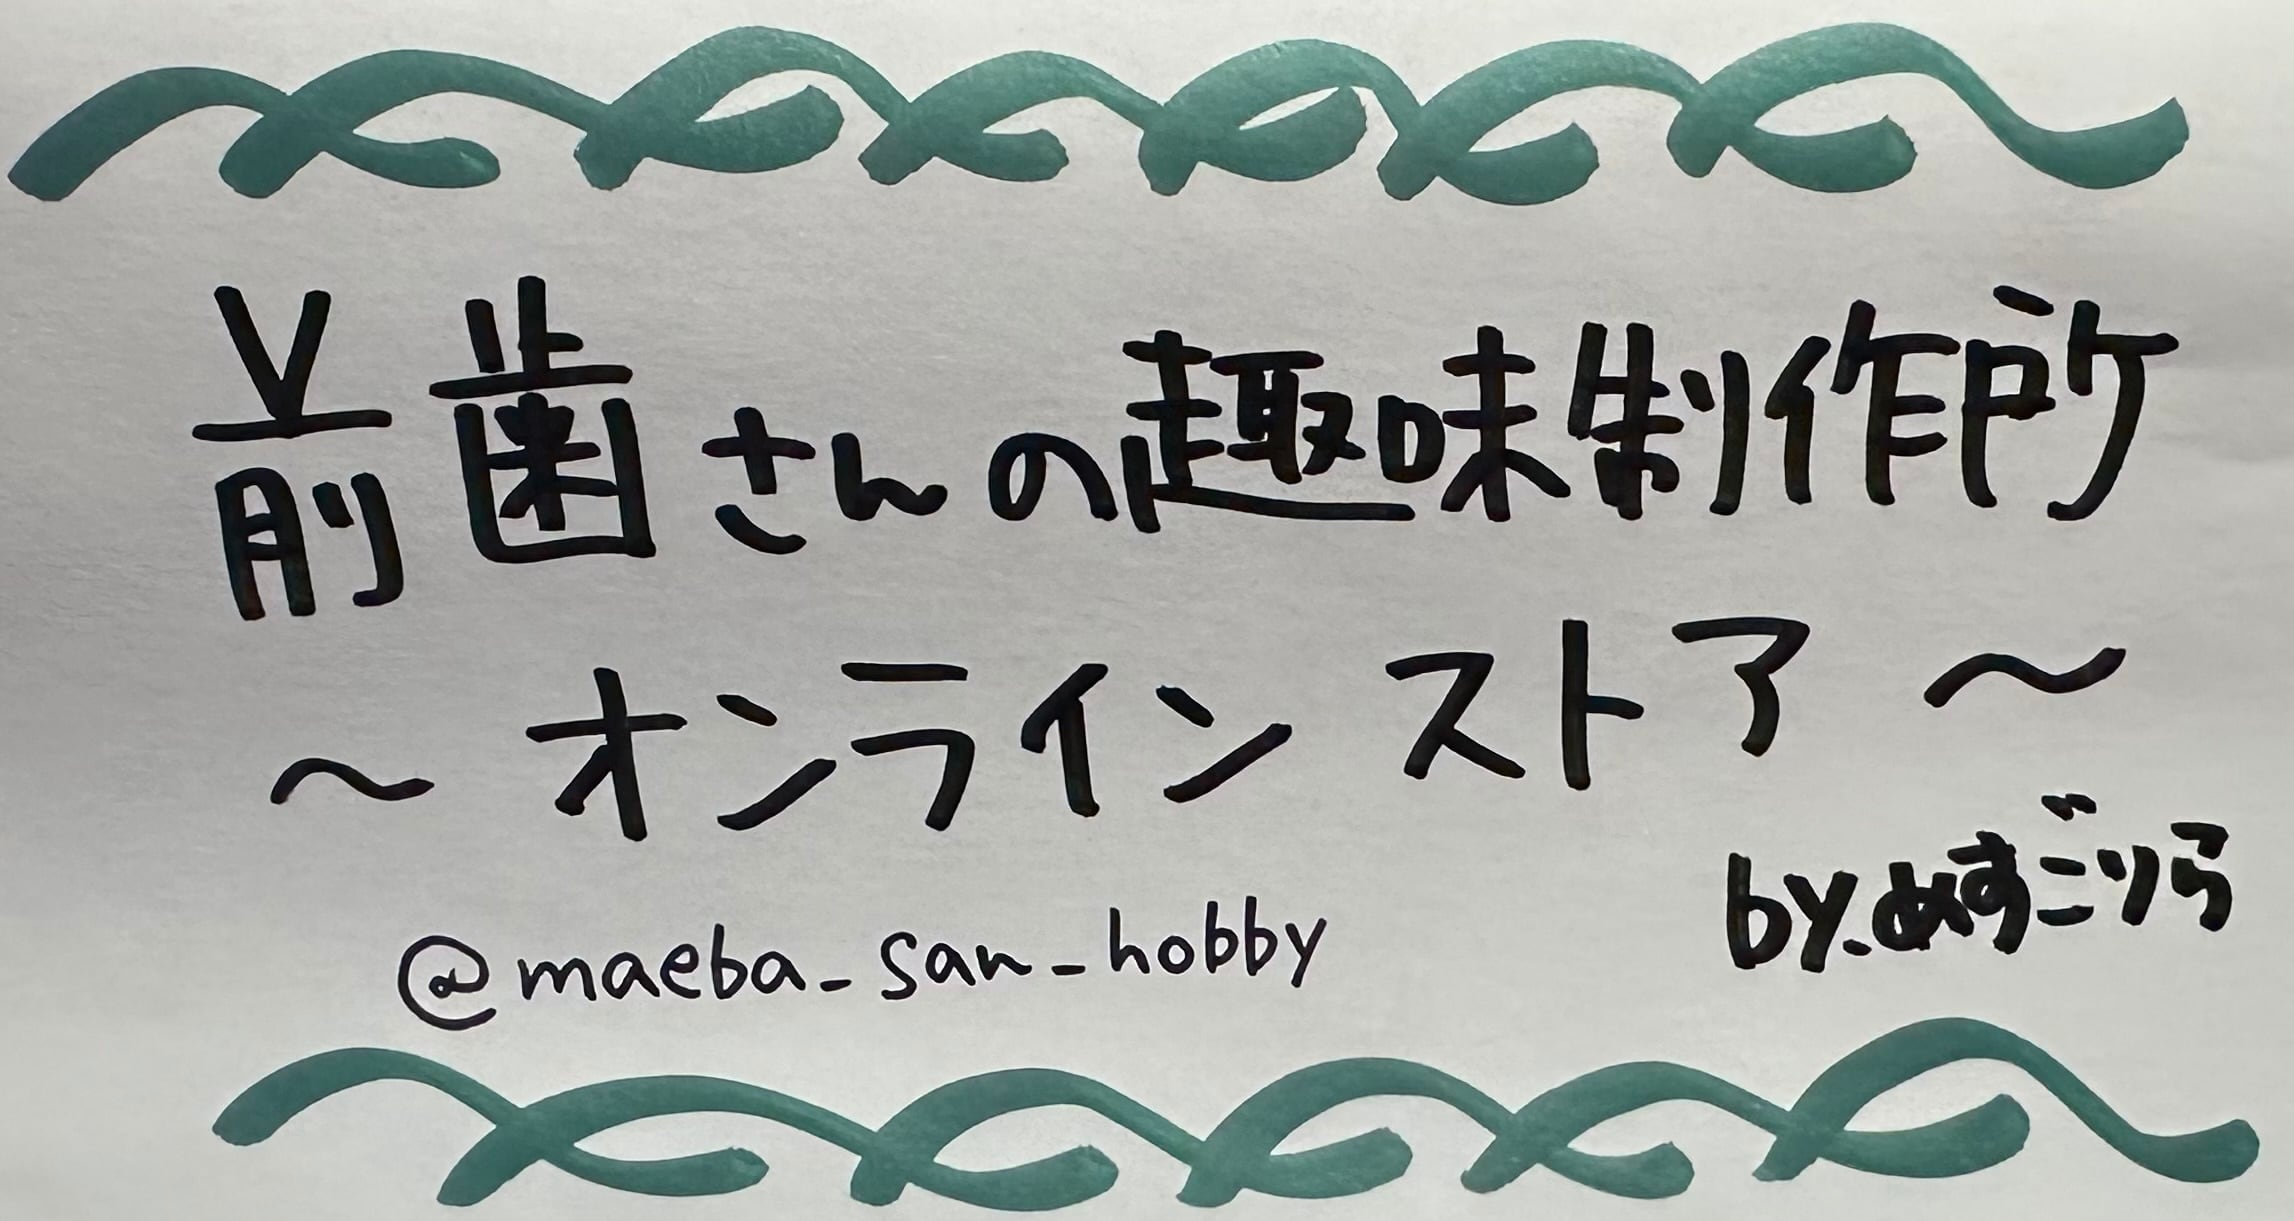 前歯さんの趣味制作所
～オンラインストア～
by.めすごりら
@maeba_san_hobby